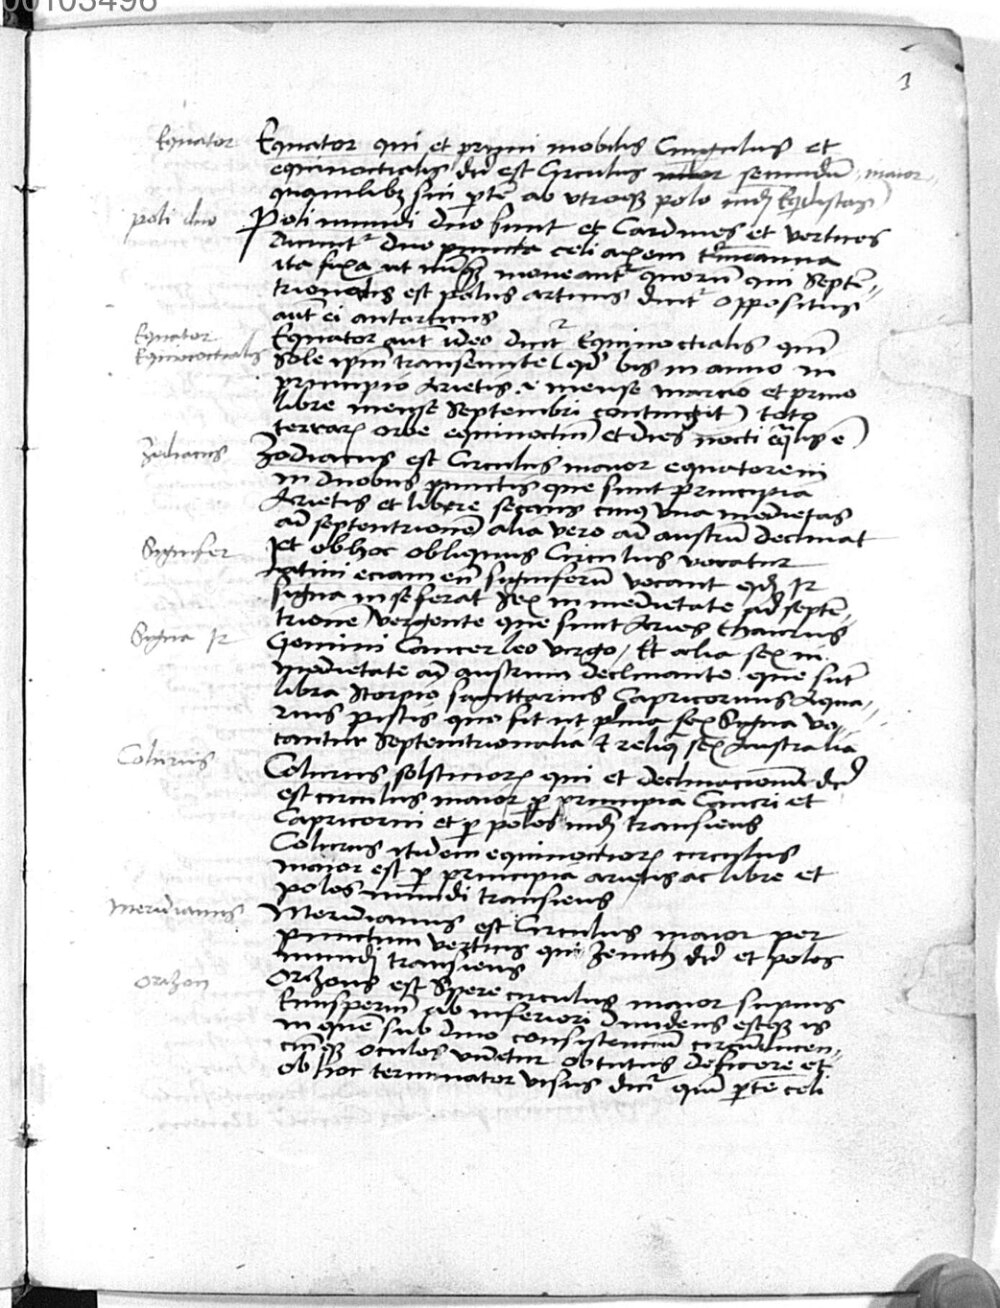 00103496
1
Equator Equator qui et primi mobilis Cingulus et
equinoctialis dr̄ est Circulus secundū maior
quamlibꝫ sui ptē ab utroqꝫ polo mūdi Eqidistans
poli duo Poli mundi duo sunt et Cardines et vertices
dicunt͛ duo puncta celi axem t͛minantia
ita fixa ut nūqꝫ moveant͛ quorū qui Septē-
trionalis est polus articus dicit͛ oppositus
aut̄ ei antarticus
Equator Equator aut̄ ideo dicit͛ Equinoctialis qm̄
Equinoctialis Sole ipm̄ transeunte (qd̄ bis in anno in
principio Arietis .i. mense marcio et primo
libre mense Septembri contingit) toto
terrarꝝ orbe equinoctiū et dies nocti eq̄lis ē
Zodiacus Zodiacus est Circulus maior equatorem
in duobus punctis que sunt principia
Arietis et libre secans cuius una medietas
ad septentrionem alia vero ad austrū declinat
Signifer Et ob hoc obliquus Circulus vocatur
Latini eciam eū signiferū vocant eo qd̄ 12
signa in se ferat Sex in medietate ad septē-
trionē vergente que sunt Aries thaurus
Signa 12 Gemini Cancer leo virgo / Et alia sex in
medietate ad austrum declinante que sūt
libra Scorpio sagittarius Capricornus Aqua-
rius piscis quo fit ut prima sex Signa vo-
cantur Septentrionalia et reliq̄ sex Australia
Colurus Colurus solsticiorꝝ qui et declinacionū dr̄
est circulus maior ꝑ principia Cancri et
Capricorni et ꝑ polos mūdi transiens
Colurus itidem equinoctiorꝝ circulus
maior est ꝑ principia arietis ac libre et
polos mundi transiens
Meridianus Meridianus est Circulus maior per
punctum verticis qui Zenith dr̄ et polos
mundi transiens
Orizon Orizons est Spere circulus maior supius
Emisperiū ab inferiori dividens estqꝫ is
in quē sub divo consistenciū circūducen-
ciūqꝫ oculos videtur obtutus deficere et
ob hoc terminator visus dicit͛ qui ꝑtē celi